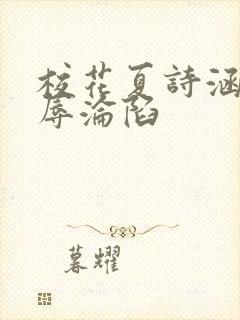 校花夏詩涵
辱淪陷
暮耀